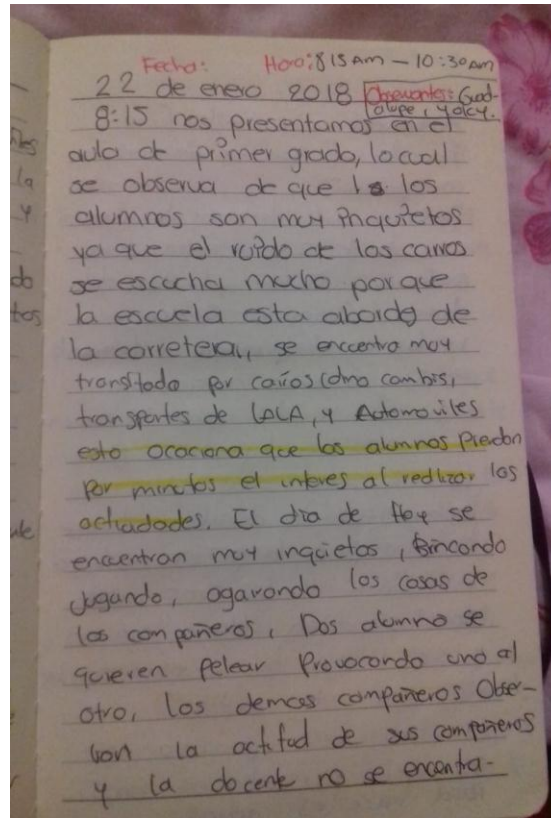 Fecha: Hora: 8:15 AM – 10:30 AM
22 de enero 2018 Observantes: Guad-
alupe, yolcy.
8:15 nos presentamos en el
aula de primer grado, locual
se observa de que los
alumnos son muy inquietos
ya que el ruido de los carros
se escucha mucho porque
la escuela esta aborde de
la carretera, se encentra muy
transitada por carros como combis,
transportes de LALA, y Automoviles
esto ocaciona que los alumnos pierdan
por minutos el interes al realizar las
actividades. El dia de Hoy se
encuentran muy inquietos, Brincando
Jugando, agarando las cosas de
los compañeros, Dos alumno se
quieren pelear Provocando uno al
otro, los demas compañeros Obser-
van la actitud de sus compañeros
y la docente no se encentra-